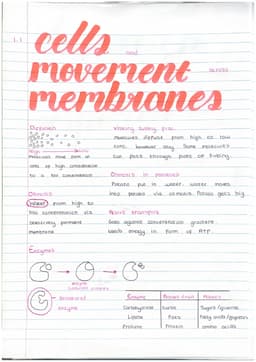 1.1
cells
and
movement
membranes
Diffusion
Visking tubing prac.
Molecules diffuse from high to low
conc, however only some molecules
can pass through pores of tubing.
High
Low
Molecules move from an
area of high concentration
to a low concentration
Osmosis in potatoes
Potato put in water, water moves
into potato via osmosis. Potato gets big.
Osmosis
Water from high to
low concentration via
selectively permeable
membrane
Active transport
Goes against concentration gradient.
Needs energy in form of ATP.
Enzymes
enzyme
substrate complex
denatured
enzyme
Enzyme
Breaks down
Makes
Carbohydrase
Starch
Sugars/glucose
Lipase
Fats
Fatty acids/glycerol
Protease
Protein
amino acids